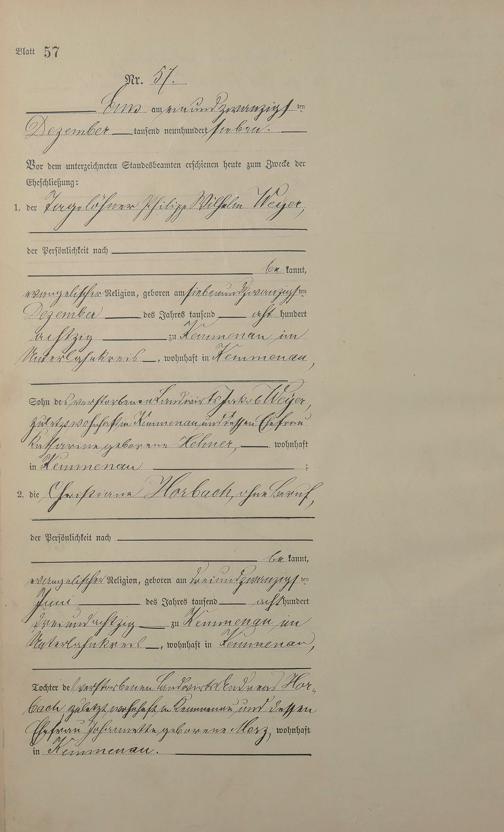 Blatt 57
Nr. 57.
Ems am einundzwanzigsten
Dezember tausend neunhundert sieben.
Vor dem unterzeichneten Standesbeamten erschienen heute zum Zwecke der
Eheschließung:
1. der Tagelöhner Philipp Wilhelm Weyer,
der Persönlichkeit nach
be kannt,
evangelischer Religion, geboren am siebenundzwanzigsten
Dezember des Jahres tausend acht hundert
achtzig zu Kemmenau im
Unterlahnkreis, wohnhaft in Kemmenau,
Sohn des verstorbenen Landwirts Jakob Weyer,
zuletzt wohnhaft in Kemmenau und dessen Ehefrau
Katharine geborene wohnhaft
in Kemmenau ;
2. die Christiane Horbach, ohne Beruf,
der Persönlichkeit nach
be kannt,
evangelischer Religion, geboren am dreiundzwanzigsten
Juni des Jahres tausend acht hundert
dreiundachtzig zu Kemmenau im
Unterlahnkreis, wohnhaft in Kemmenau,
Tochter des verstorbenen Landwirts Andreas Hor-
bach zuletzt wohnhaft in Kemmenau und dessen
Ehefrau Johannette geborene Merz, wohnhaft
in Kemmenau.